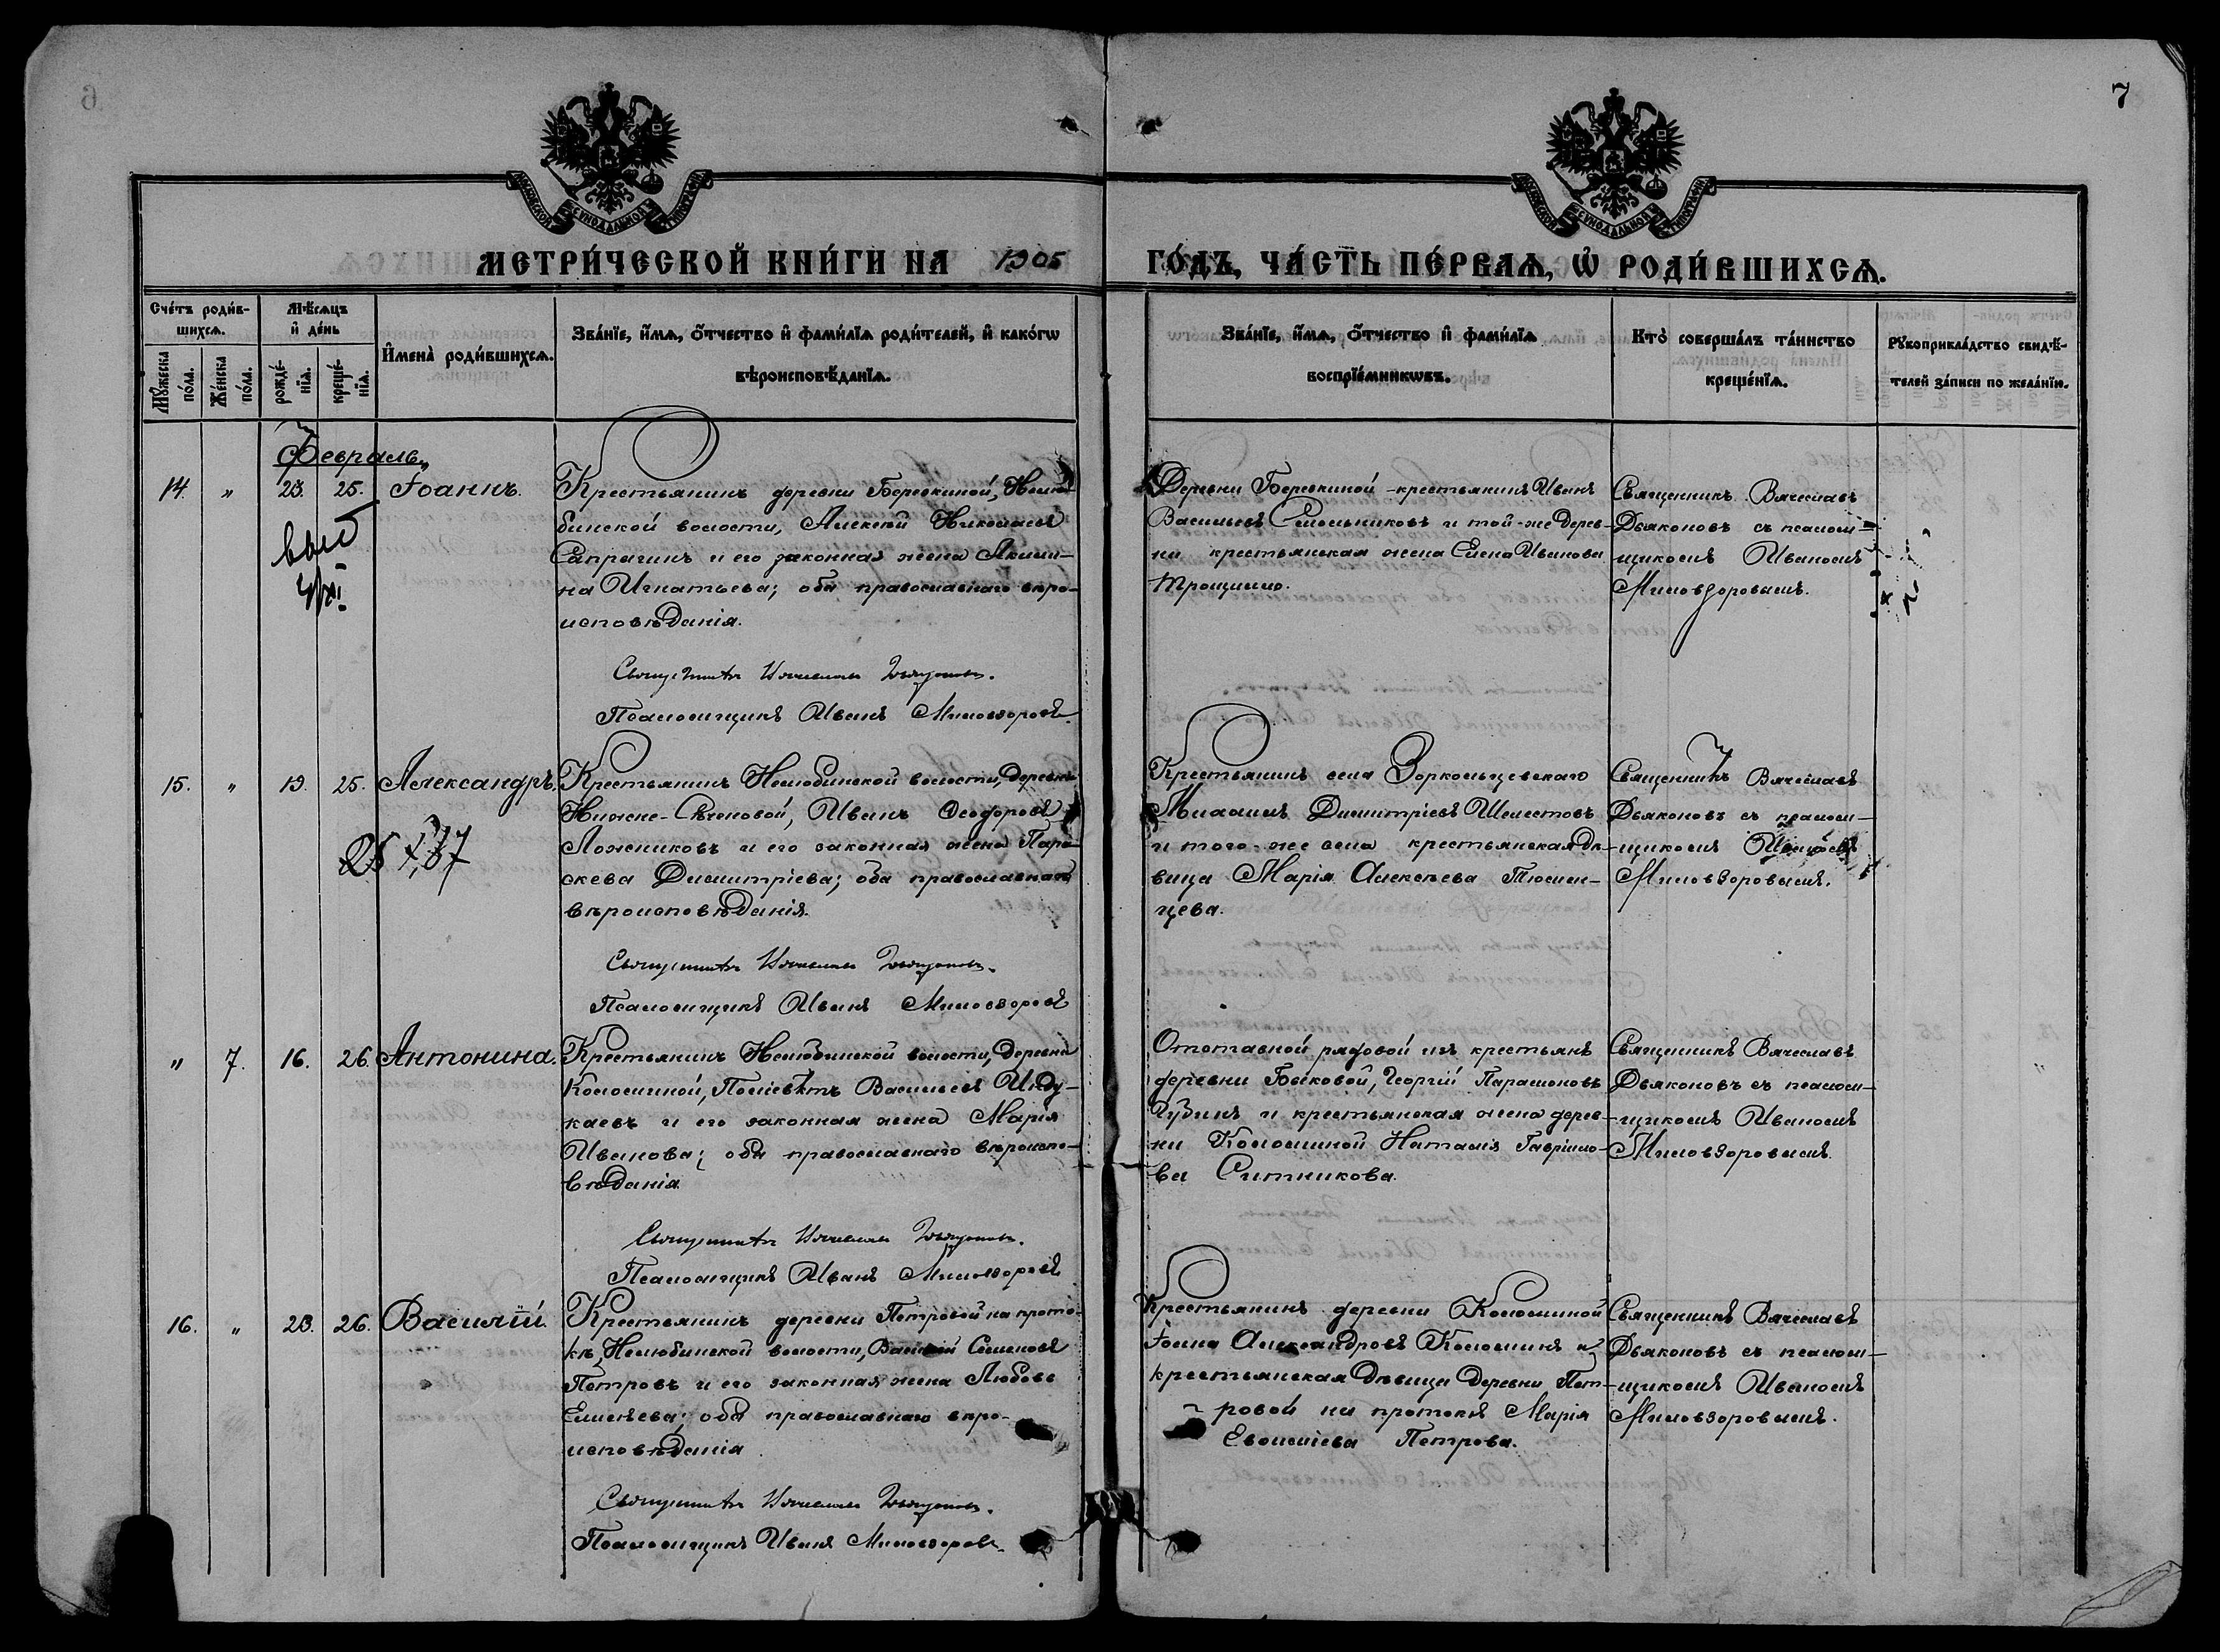 7
МОСКОВСКОЙ СѴНОДАЛЬНОЙ ТИПОГРАФІИ
МОСКОВСКОЙ СѴНОДАЛЬНОЙ ТИПОГРАФІИ
МЕТРИ́ЧЕСКОЙ КНИ́ГИ НА 1905
ГО́ДЪ, ЧА́СТЬ ПЕ́РВАѦ, Ѡ҆ РОДИ́ВШИХСѦ.
Сче́тъ роди́в-
шихсѧ.
Мꙋ́жеска по́ла.
Же́нска по́ла.
Мѣ́сѧцъ
и҆ де́нь
рожде́-
нїѧ.
креще́-
нїѧ.
И҆мена̀ роди́вшихсѧ.
Зва́нїе, и҆́мѧ, ѻ҆́тчество и҆ фами́лїѧ роди́телей, и҆ како́гѡ
вѣроисповѣ́данїѧ.
Зва́нїе, и҆́мѧ, ѻ҆́тчество и҆ фами́лїѧ
воспрїе́мникѡвъ.
Кто̀ соверша́лъ та́инство
креще́нїѧ.
Рꙋкоприкла́дство свидѣ́-
телей за́писи по жела́нїю.
Февраль.
14. „ 23. 25. Іоаннъ.
Крестьянинъ деревни Березкиной, Нелю-
бинской волости, Алексѣй Николаевъ
Сапрыгинъ и его законная жена Акили-
на Игнатьева; оба православнаго вѣро-
исповѣданія.
Священникъ Вячеславъ Дьяконовъ.
Псаломщикъ Иванъ Миловзоровъ.
Деревни Березкиной крестьянинъ Иванъ
Васильевъ и той-же дерев-
ни крестьянская жена Елена Иванова
Священникъ Вячеславъ
Дьяконовъ съ псалом-
щикомъ Иваномъ
Миловзоровымъ.
15. „ 19. 25. Александръ.
Крестьянинъ Нелюбинской волости, деревни
Нижне-Сѣченовой, Иванъ Ѳеодоровъ
Ложниковъ и его законная жена Пара-
скева Димитріева; оба православнаго
вѣроисповѣданія.
Священникъ Вячеславъ Дьяконовъ.
Псаломщикъ Иванъ Миловзоровъ
Крестьянинъ села Зоркольцевскаго
Михаилъ Димитріевъ Шелестовъ
и того-же села крестьянская дѣ-
вица Марія Алексѣева Тюмен-
цева.
Священникъ Вячеславъ
Дьяконовъ съ псалом-
щикомъ Иваномъ
Миловзоровымъ.
„ 7. 16. 26. Антонина.
Крестьянинъ Нелюбинской волости, деревни
Коломиной, Поліевктъ Васильевъ Инду-
каевъ и его законная жена Марія
Иванова; оба православнаго вѣроиспо-
вѣданія.
Священникъ Вячеславъ Дьяконовъ.
Псаломщикъ Иванъ Миловзоровъ
Отставной рядовой изъ крестьянъ
деревни Быковой, Георгій Парамоновъ
Губинъ и крестьянская жена дерев-
ни Коломиной Наталія Гаврило-
ва Ситникова.
Священникъ Вячеславъ
Дьяконовъ съ псалом-
щикомъ Иваномъ
Миловзоровымъ.
16. „ 23. 26. Василій
Крестьянинъ деревни Петровой на прото-
кѣ, Нелюбинской волости, Василій Семеновъ
Петровъ и его законная жена Любовь
Елисѣева; оба православнаго вѣро-
исповѣданія.
Священникъ Вячеславъ Дьяконовъ.
Псаломщикъ Иванъ Миловзоровъ.
Крестьянинъ деревни Коломиной
Александровъ Коломинъ и
крестьянская дѣвица деревни Пет-
ровой на протокѣ Марія
Петрова.
Священникъ Вячеславъ
Дьяконовъ съ псалом-
щикомъ Иваномъ
Миловзоровымъ.